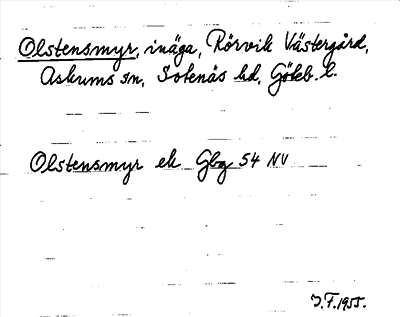 Olstensmyr, inäga, Rörvik Västergård,
Askums sn, Sotenäs hd, Göteb. l.
Olstensmyr ek Gbg 54 NV
J.F. 1955.